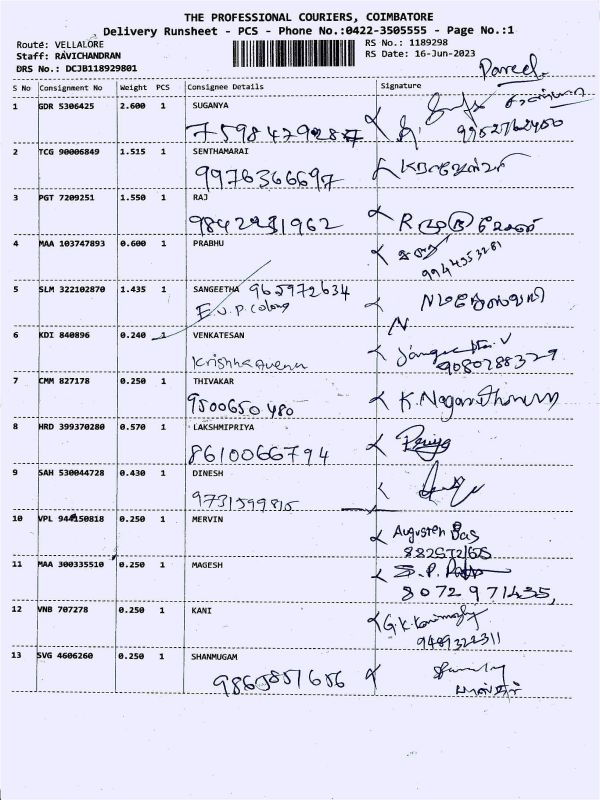 THE PROFESSIONAL COURIERS, COIMBATORE
Delivery Runsheet - PCS - Phone No.:0422-3505555 - Page No.:1
Route: VELLALORE
Staff: RAVICHANDRAN
DRS No.: DCJB118929801
RS No.: 1189298
RS Date: 16-Jun-2023
Parcel
S No Consignment No Weight PCS Consignee Details Signature
1 GDR 5306425 2.600 1 SUGANYA
7598429287 9952762450
2 TCG 90006849 1.515 1 SENTHAMARAI
9976366697
3 PGT 7209251 1.550 1 RAJ
9842931962 R
4 MAA 103747893 0.600 1 PRABHU
9944353281
5 SLM 322102870 1.435 1 SANGEETHA 965972634
E.V.P. Colony
N
6 KDI 840896 0.240 1 VENKATESAN
Krishna Avenu 9080288327
7 CMM 827178 0.250 1 THIVAKAR
9500650480 K.
8 HRD 399370280 0.570 1 LAKSHMIPRIYA
8610066794 Priya
9 SAH 530044728 0.430 1 DINESH
9731599815
10 VPL 944150818 0.250 1 MERVIN
Augusten Das
11 MAA 300335510 0.250 1 MAGESH S.P.
8072971435,
12 VNB 707278 0.250 1 KANI
G.K. 9489322311
13 SVG 4606260 0.250 1 SHANMUGAM
9865851656